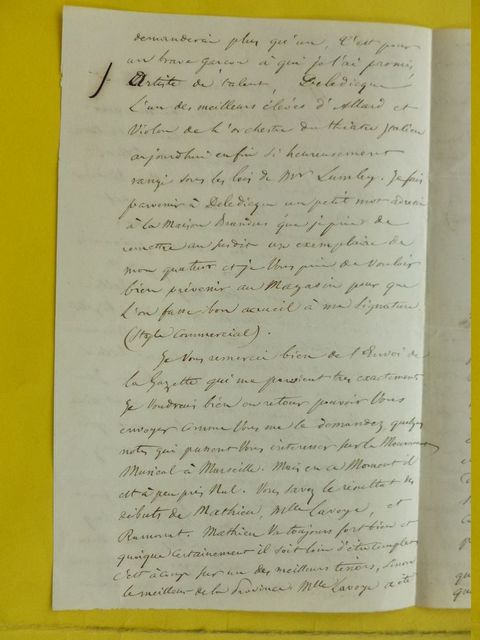 demanderai plus qu'un, C'est pour
un brave garçon à qui je l'ai promis,
Artiste de talent, Deledicque
L'un des meilleurs élèves d'Allard et
Violon de l'orchestre du théâtre Italien
aujourdhui enfin si heureusement
rangé sous les lois de Mr Lumley. Je fais
parvenir à Deledicque un petit mot adressé
à la Maison Brandus que je prie de
remettre au susdit un exemplaire de
mon quatuor et je Vous prie de Vouloir
bien prévenir au Magasin pour que
l'on fasse bon accueil à ma Signature
(Style Commercial).
Je Vous remercie bien de l'Envoi de
la Gazette qui me parvient très exactement
Je Voudrais bien en retour pouvoir Vous
envoyer comme Vous me le demandez quelques
notes qui puissent Vous intéresser sur le Mouvement
Musical à Marseille. Mais en ce Moment il
est à peu près Nul. Vous savez le résultat des
débuts de Mathieu, Mlle Lavoye, et
Mathieu Va toujours fort bien et
quoique Certainement il soit loin d'être
c'est à coup sur un des meilleurs ténors, sinon
le meilleur de la Province. Mlle Lavoye a été